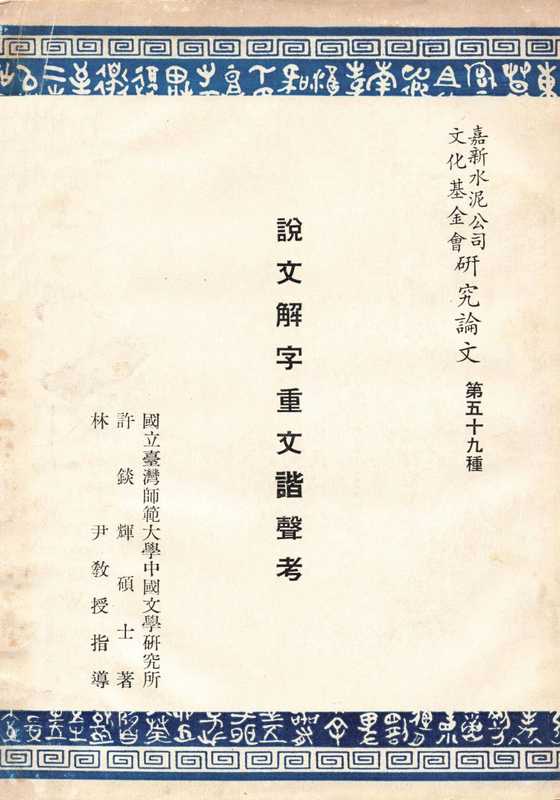 嘉新水泥公司
文化基金會
研究論文
第五十九種
說文解字重文諧聲考
國立臺灣師範大學中國文學研究所
許錟輝碩士著
林尹教授指導